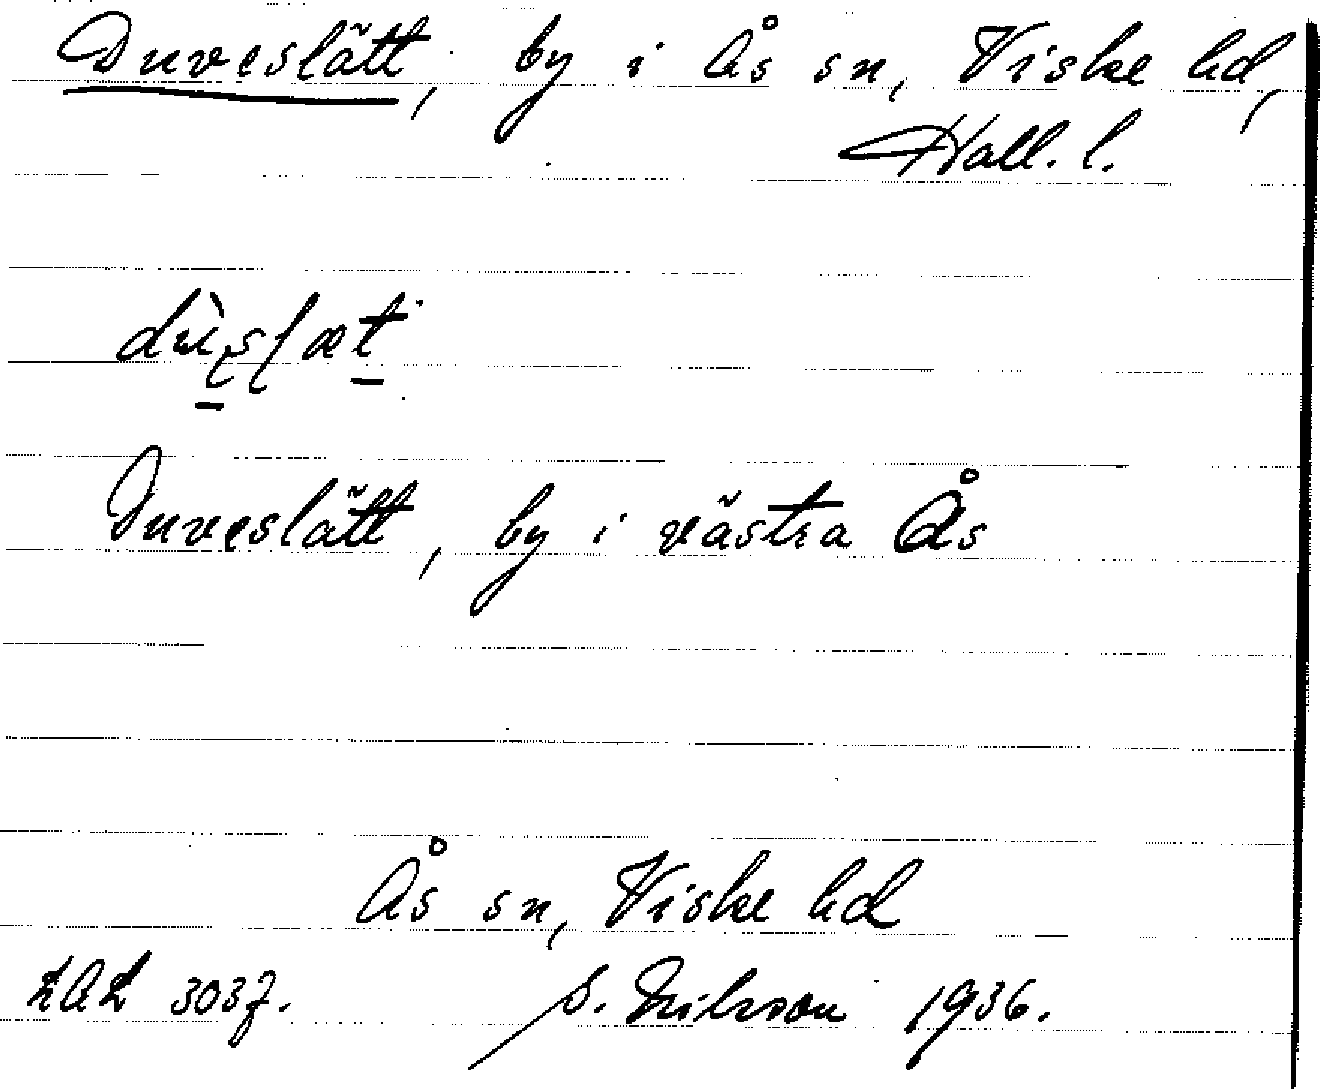 Duveslätt, by i Ås sn, Viske hd,
Hall. l.
Duveslätt, by i västra Ås
Ås sn, Viske hd
LAL 3037.
S. Nilsson 1936.